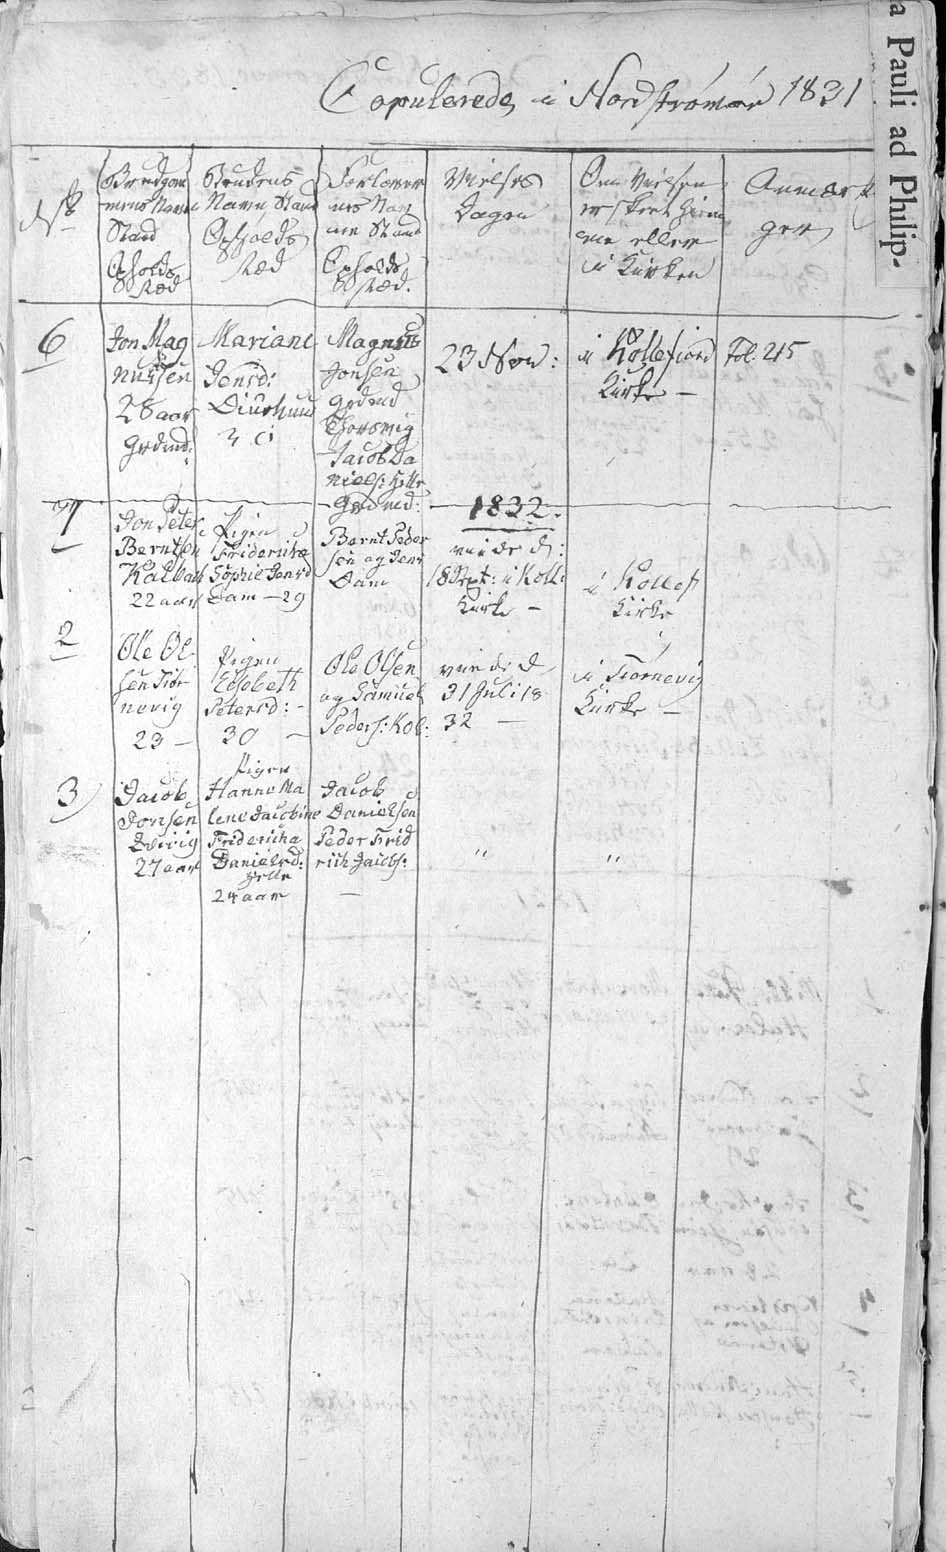 a Pauli ad Philip-
Copulerede i Nordstrømøe 1831
No
Brudgom
mens Navn
Stand
Opholds
Stæd
Brudens
Navn Stand
Opholds
Stæd
Forlover
nes Nav
ne Stand
Opholds
Stæd.
Vielses
Dagen
Om Vielsen
er skeet hiem
me eller
i Kirken
Anmærk
ger
6
Jon Mag
nussen
28 aar
Grdmd:
Mariane
Jensd:
Diurhuus
Magnus
Jonsen
Grdmd
Thorsvig
Jacob Da
niels:
Grdmd:
23 Nov:
i Kollefiord
Kirke –
Fol. 215
1832.
1
Jon Peter
Berntsen
Kalbak
22 aar
Pigen
Friderika
Sophie Jensd
Dam – 29
Bernt Peder
sen og Jens
Dam
viede d:
18 Sept: i Koll:
Kirke –
i Kollef
Kirke
2
Ole Ol
sen Tiør
nevig
23 –
Pigen
Elsebeth
Petersd: –
30 –
Ole Olsen
og Samuel
Peders: Kol:
viede d
31 Juli 18
32 –
i Tiørnevig
Kirke –
3
Jacob
Jonsen
Qvivig
27 aar
Pigen
Hanne Ma
lene Jacobine
Friderika
Danielsd:
24 aar
Jacob
Danielsen
Peder Frid
rich Jacobs:
–
"
"